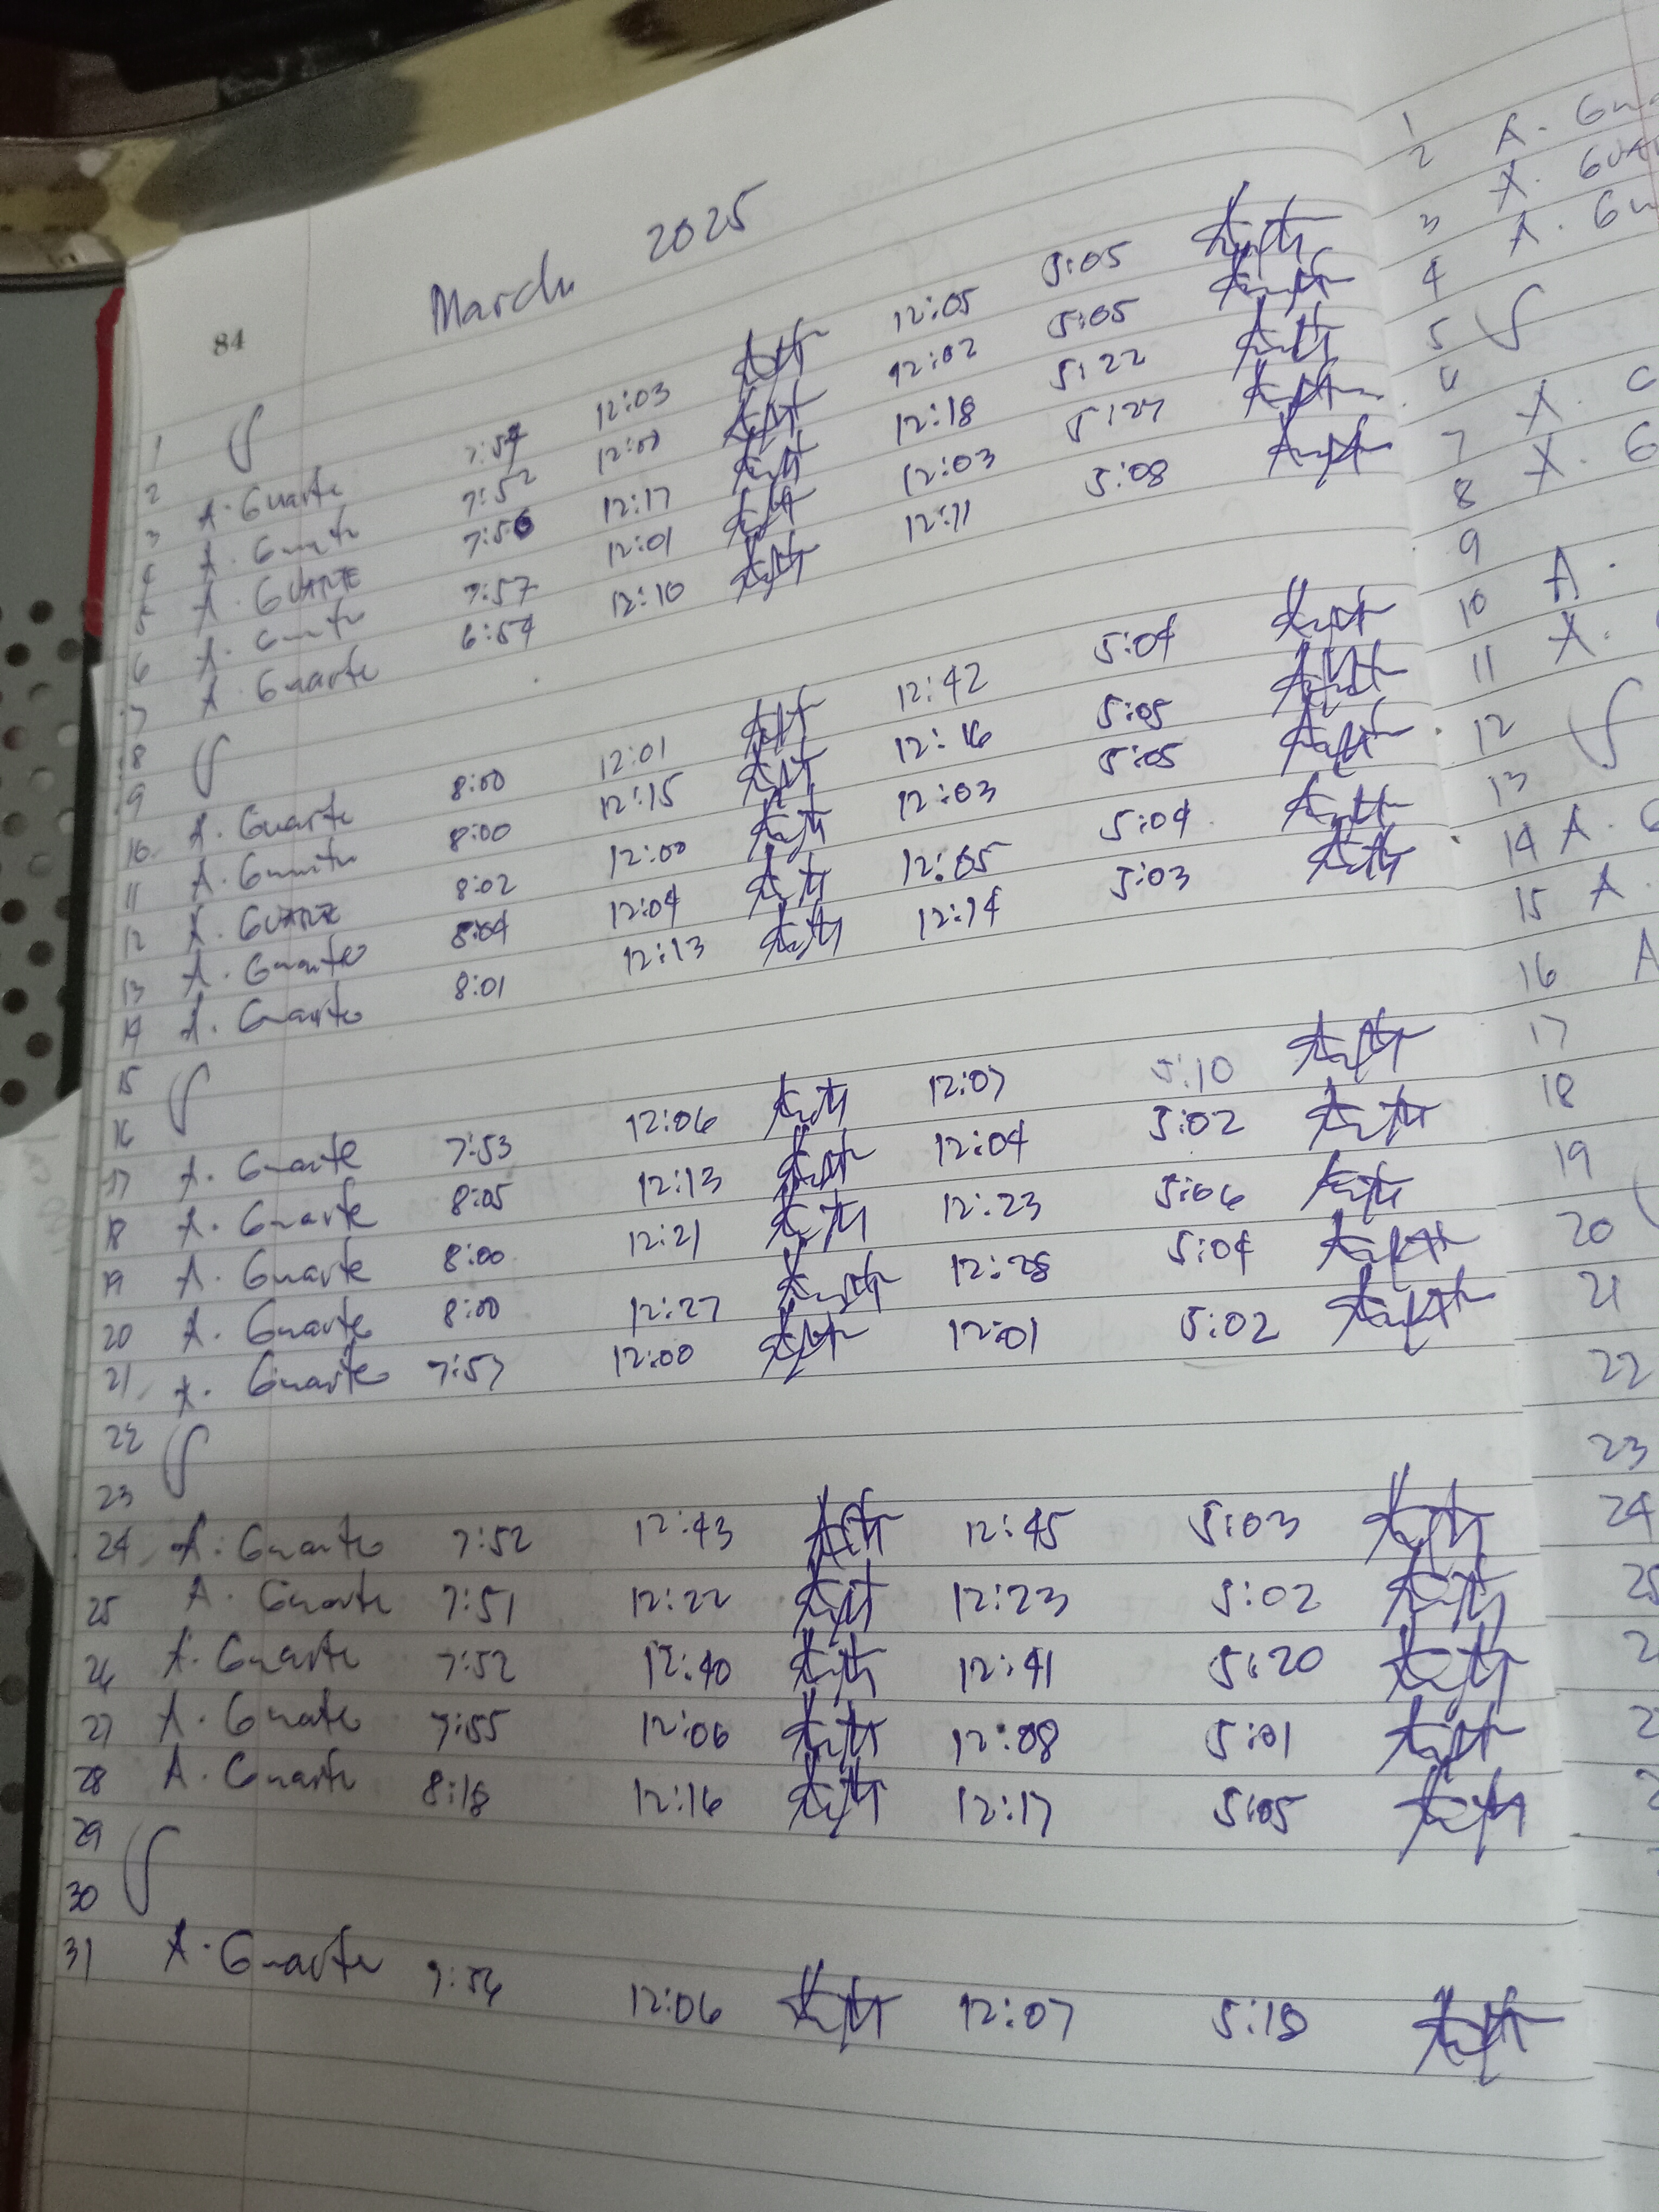 March 2025
84
1
2
3 A. Guarte 7:54 12:03 12:05 5:05
4 A. Guarte 7:52 12:02 5:05
5 A. GUARTE 7:56 12:17 12:18 5:22
6 A. Guarte 7:57 12:01 12:03 5:27
7 A. Guarte 6:54 12:10 12:11 5:08
8
9
10 A. Guarte 8:00 12:01 12:42 5:04
11 A. Guarte 8:00 12:15 12:16 5:05
12 A. GUARTE 8:02 12:00 12:03 5:05
13 A. Guarte 8:04 12:04 12:05 5:04
14 A. Guarte 8:01 12:13 12:14 5:03
15
16
17 A. Guarte 7:53 12:06 12:07 5:10
18 A. Guarte 8:05 12:13 12:04 5:02
19 A. Guarte 8:00 12:21 12:23 5:06
20 A. Guarte 8:00 12:27 12:28 5:04
21 A. Guarte 7:57 12:00 12:01 5:02
22
23
24 A. Guarte 7:52 12:43 12:45 5:03
25 A. Guarte 7:51 12:22 12:23 5:02
26 A. Guarte 7:52 12:40 12:41 5:20
27 A. Guarte 7:55 12:06 12:08 5:01
28 A. Guarte 8:18 12:16 12:17 5:05
29
30
31 A. Guarte 7:56 12:06 12:07 5:18
1 A.
2 A.
3 A.
4
5
6
7 A.
8 A.
9
10 A.
11 A.
12
13
14 A.
15 A.
16 A
17
18
19
20
21
22
23
24
25